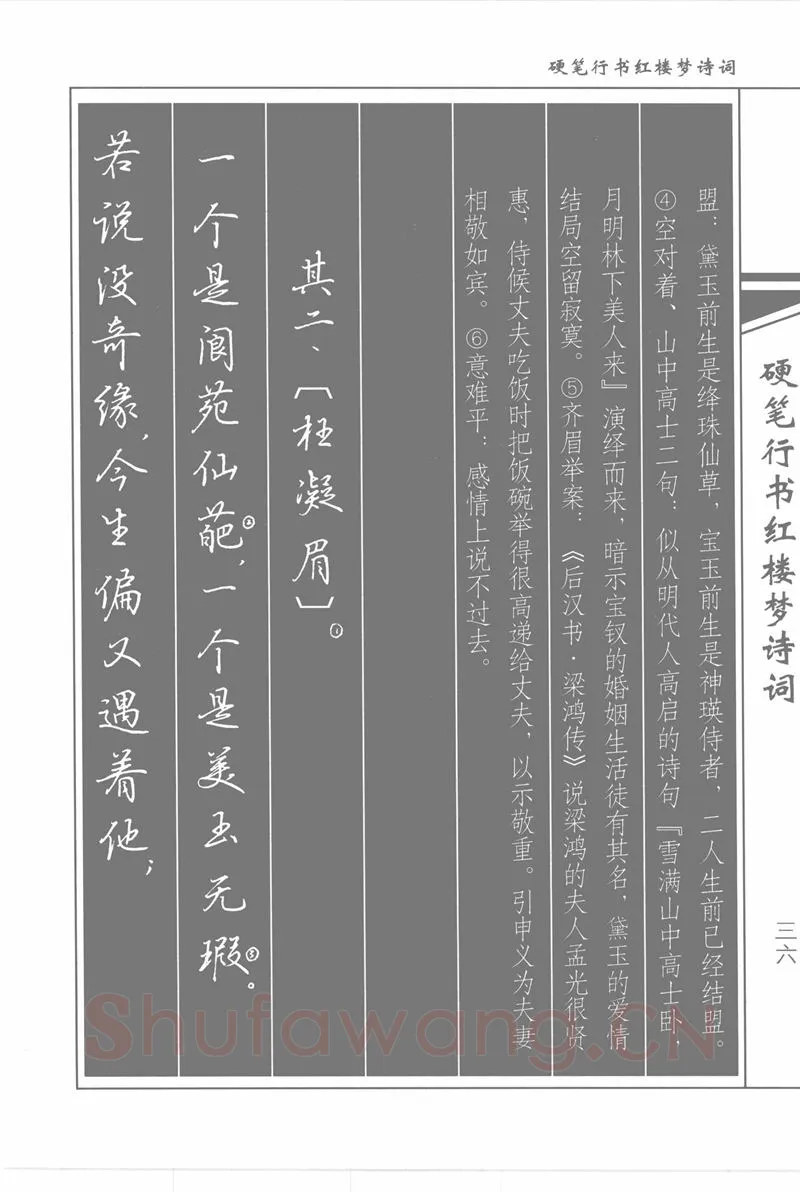 硬笔行书红楼梦诗词
盟：黛玉前生是绛珠仙草，宝玉前生是神瑛侍者，二人生前已经结盟。
④空对着、山中高士二句：似从明代人高启的诗句『雪满山中高士卧，
月明林下美人来』演绎而来，暗示宝钗的婚姻生活徒有其名，黛玉的爱情
结局空留寂寞。⑤齐眉举案：《后汉书·梁鸿传》说梁鸿的夫人孟光很贤
惠，侍候丈夫吃饭时把饭碗举得很高递给丈夫，以示敬重。引申义为夫妻
相敬如宾。⑥意难平：感情上说不过去。
其二、〔枉凝眉〕①
一个是阆苑仙葩②，一个是美玉无瑕③。
若说没奇缘，今生偏又遇着他；
硬笔行书红楼梦诗词
三六
Shufawang.CN